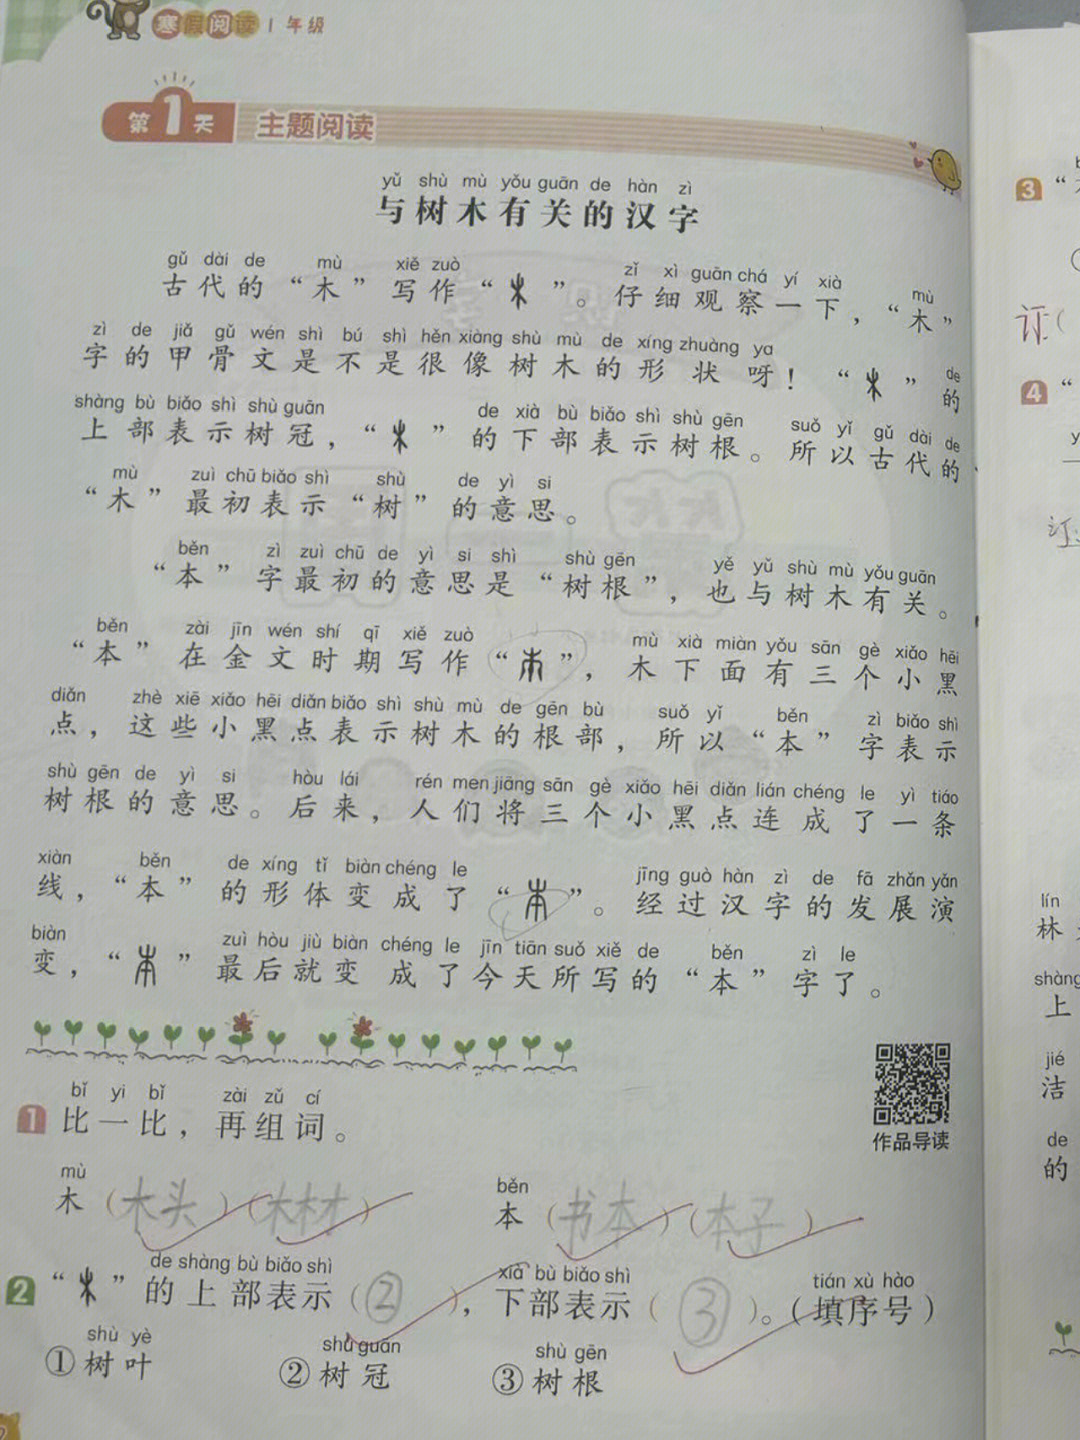 寒假阅读 1年级
第1天 主题阅读
yǔ shù mù yǒu guān de hàn zì
与树木有关的汉字
gǔ dài de mù xiě zuò zǐ xì guān chá yí xià mù
古代的“木”写作“”。仔细观察一下，“木”
zì de jiǎ gǔ wén shì bú shì hěn xiàng shù mù de xíng zhuàng ya de
字的甲骨文是不是很像树木的形状呀！“”的
shàng bù biǎo shì shù guān de xià bù biǎo shì shù gēn suǒ yǐ gǔ dài de
上部表示树冠，“”的下部表示树根。所以古代的
mù zuì chū biǎo shì shù de yì si
“木”最初表示“树”的意思。
běn zì zuì chū de yì si shì shù gēn yě yǔ shù mù yǒu guān
“本”字最初的意思是“树根”，也与树木有关。
běn zài jīn wén shí qī xiě zuò mù xià miàn yǒu sān gè xiǎo hēi
“本”在金文时期写作“”，木下面有三个小黑
diǎn zhè xiē xiǎo hēi diǎn biǎo shì shù mù de gēn bù suǒ yǐ běn zì biǎo shì
点，这些小黑点表示树木的根部，所以“本”字表示
shù gēn de yì si hòu lái rén men jiāng sān gè xiǎo hēi diǎn lián chéng le yì tiáo
树根的意思。后来，人们将三个小黑点连成了一条
xiàn běn de xíng tǐ biàn chéng le jīng guò hàn zì de fā zhǎn yǎn
线，“本”的形体变成了“”。经过汉字的发展演
biàn zuì hòu jiù biàn chéng le jīn tiān suǒ xiě de běn zì le
变，“”最后就变成了今天所写的“本”字了。
作品导读
bǐ yi bǐ zài zǔ cí
1 比一比，再组词。
mù běn
木（木头）（木材） 本（书本）（本子）
de shàng bù biǎo shì xià bù biǎo shì tián xù hào
2 “”的上部表示（②），下部表示（③）。（填序号）
shù yè shù guān shù gēn
①树叶 ②树冠 ③树根
3 “
订（
4 “
lín
林
shàng
上
jié
洁
de
的